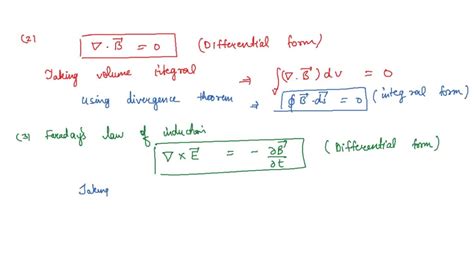 (2) ∇ · B⃗ = 0 (Differential form)
Taking volume integral ⇒ ∫(∇ · B⃗) dv = 0
using divergence theorem ⇒ ∮ B⃗ · ds⃗ = 0 (integral form)
(3) Faraday's law of induction
∇ × E⃗ = - ∂B⃗/∂t (Differential form)
Taking